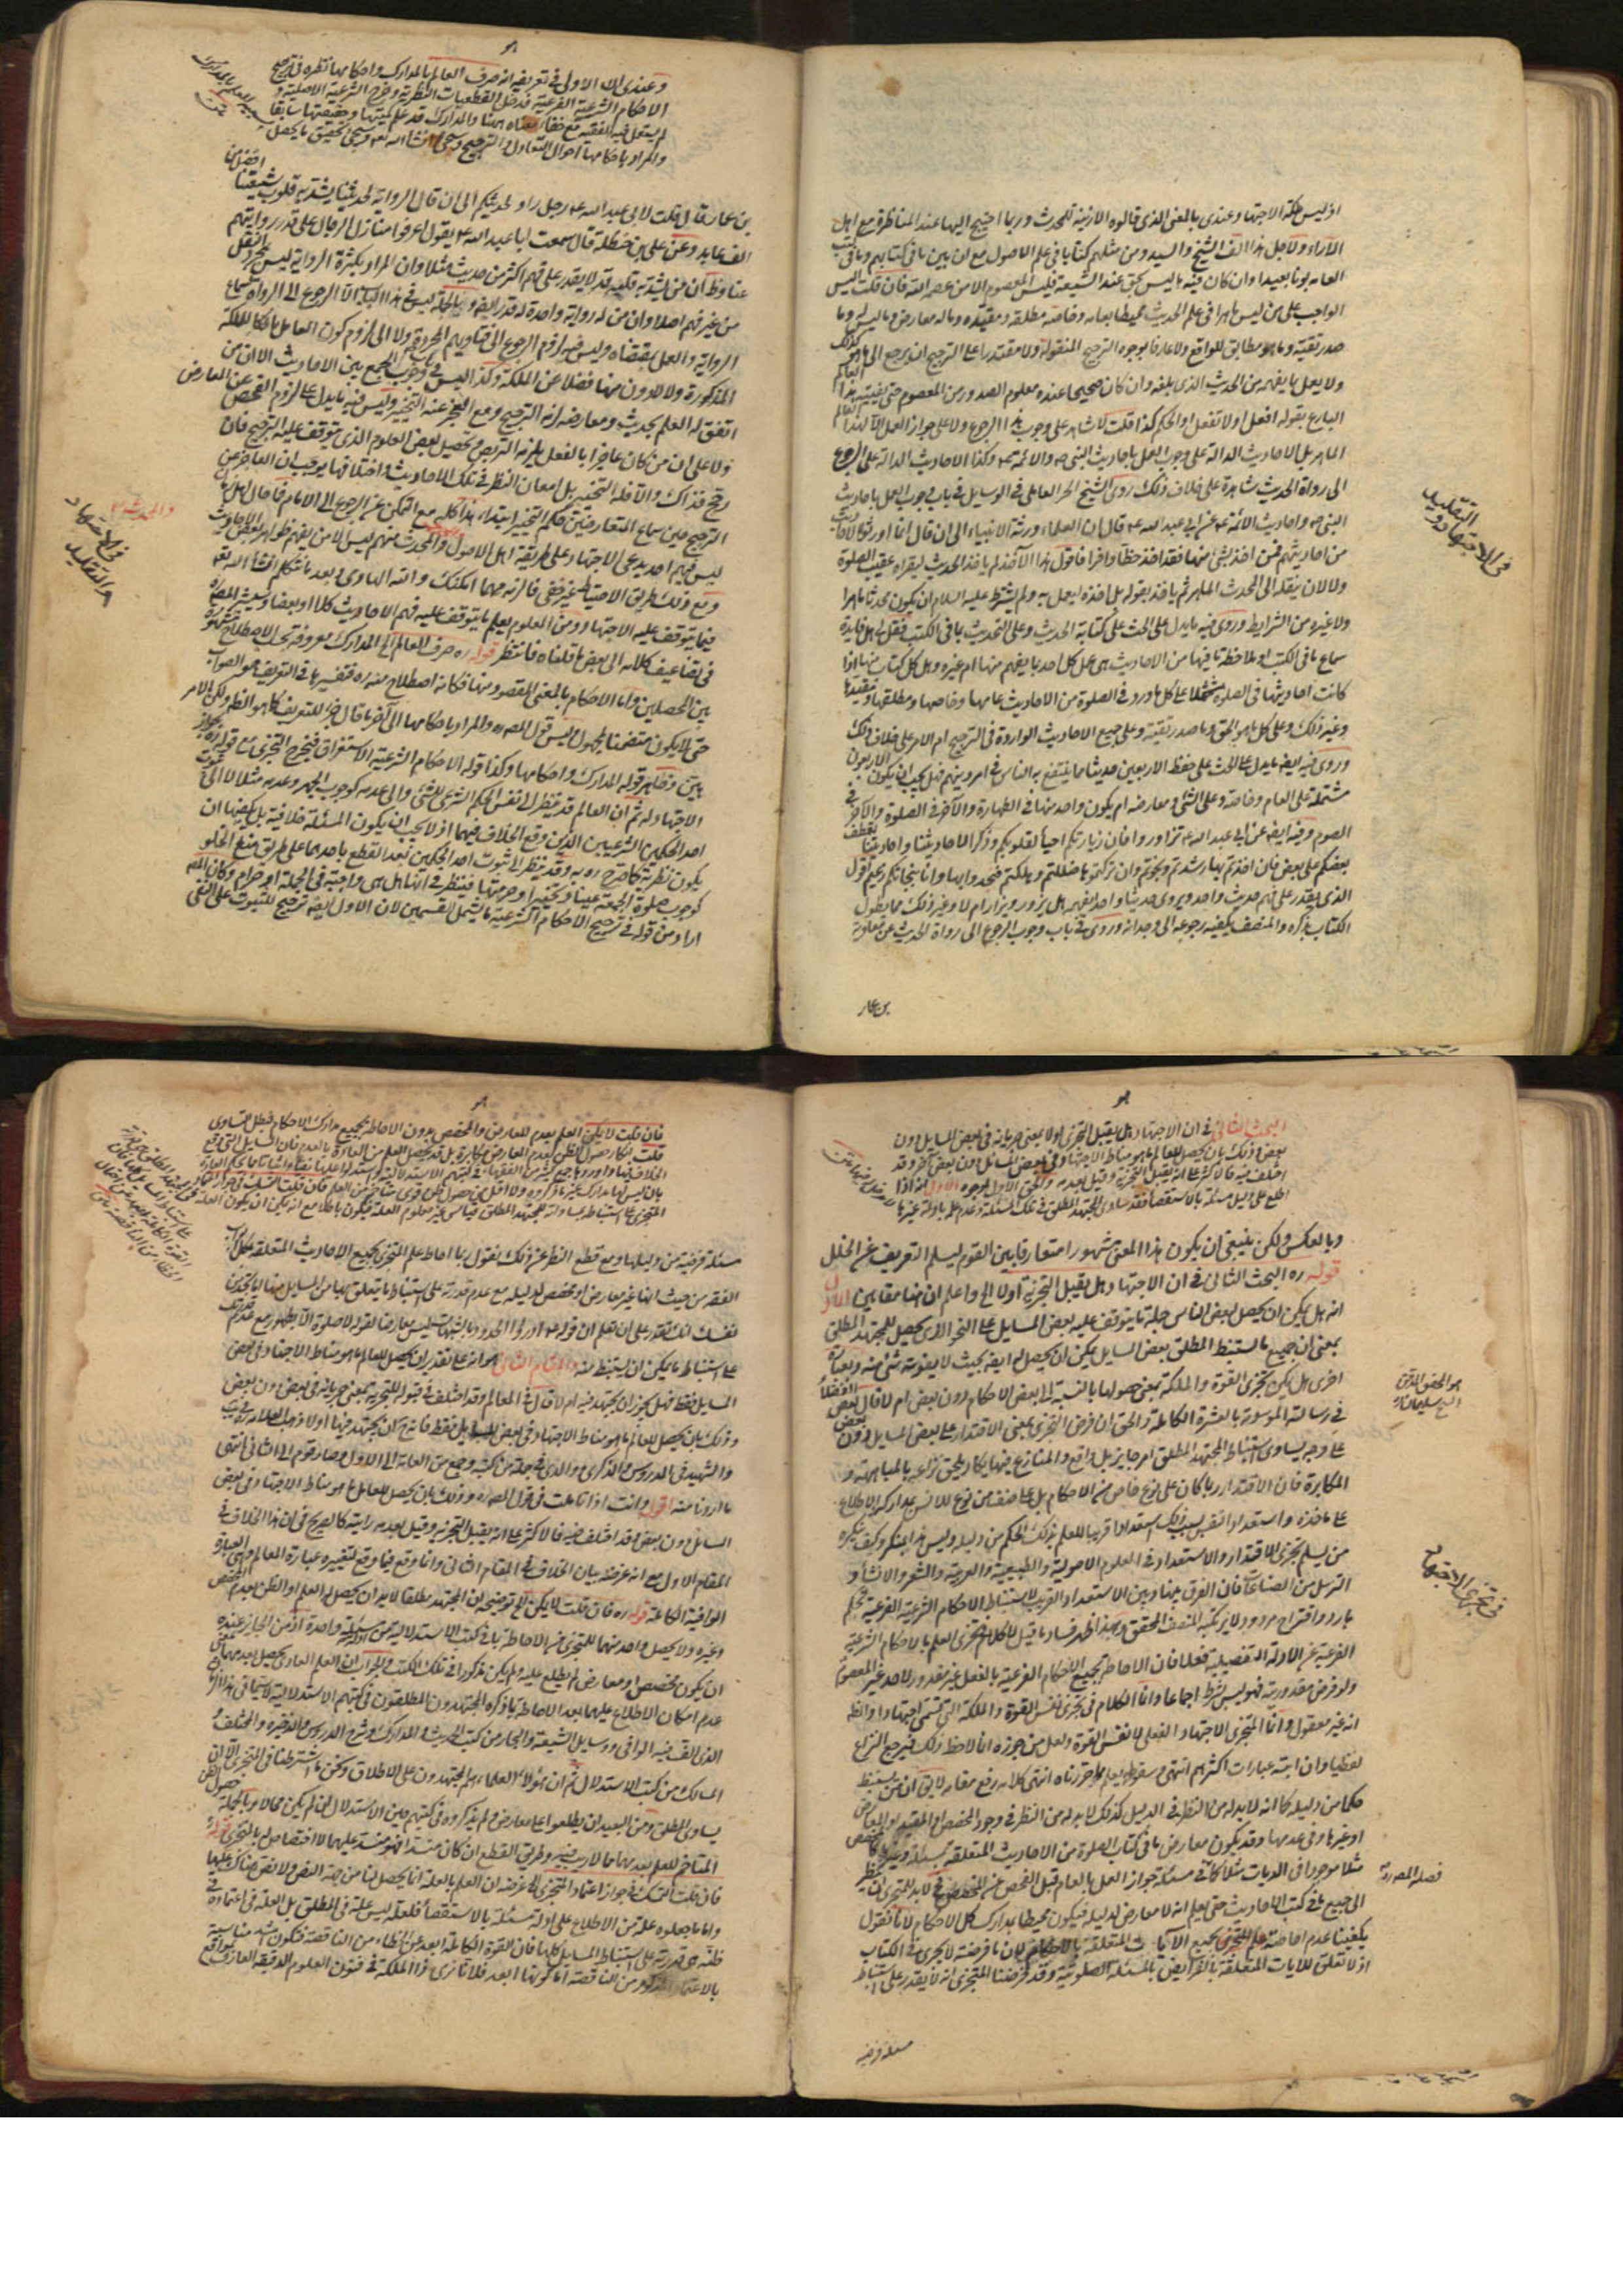 اذ ليس ملكة الاجتهاد عندى بالمعنى الذى قالوه الا زينة للمحدث وربما احتيج اليها عند المناظرة مع اهل
الآراء ولاجل هذا الف الشيخ والسيد ومن مثلهم كتابا فى علم الاصول مع ان بين ما فى كتابهم وما فى كتب
العامه بونا بعيدا وان كان فيه ما ليس بحق عند الشيعة فليس المعصوم الا من عصمه الله فان قلت اليس
الواجب على من ليس ماهرا فى علم الحديث محيطا بعامه وخاصه مطلقه ومقيده وما له معارض وما ليس له وما
صدر تقية وما هو مطابق للواقع ولا عارفا بوجوه الترجيح المنقولة ولا مقتدرا على الترجيح ان يرجع الى ما هو كذلك
ولا يعمل بما يفهمه من الحديث الذى بلغه وان كان صحيحا عنده معلوم الصدور من المعصوم حتى يفتيه هذا العالم
البارع بقوله افعل او لا تفعل او الحكم كذا قلت لا شاهد على وجوب هذا الرجوع ولا على جواز العمل الا لهذا العالم
الماهر بل الاحاديث الدالة على وجوب العمل باحاديث النبى ص والائمة ع وكذا الاحاديث الدالة على الرجوع
الى رواة الحديث شاهدة على خلاف ذلك روى الشيخ الحر العاملى فى الوسايل فى باب وجوب العمل باحاديث
النبى ص واحاديث الائمة ع عن ابى عبد الله ع قال ان العلماء ورثة الانبياء الى ان قال انما اورثوا احاديث
من احاديثهم فمن اخذ بشئ منها فقد اخذ حظا وافرا فاقول هذا الآخذ لم ياخذ الحديث ليقراه عقيب الصلوة
ولا لان ينقله الى المحدث الماهر ثم ياخذ بقوله بل اخذه ليعمل به ولم يشترط عليه السلام ان يكون محدثا ماهرا
ولا غيره من الشرايط وروى فيه ما يدل على الحث على كتابة الحديث وعلى التحديث بما فى الكتب فقل لى هل فايدة
سماع ما فى الكتب او ملاحظة ما فيها من الاحاديث هى عمل كل احد بما يفهم منها ام غيره وهل كل كتاب منها اذا
كانت احاديثها فى الصلوة مشتملا على كل ما ورد فى الصلوة من الاحاديث عامها وخاصها ومطلقها ومقيدها
وغير ذلك وعلى كل ما هو الحق وما صدر تقية وعلى جميع الاحاديث الواردة فى الترجيح ام الامر على خلاف ذلك
وروى فيه ايضا ما يدل على الحث على حفظ الاربعين حديثا مما ينتفع به الناس فى امر دينهم فهل يجب ان يكون الاربعون
مشتملة على العام وخاصه وعلى الشئ ومعارضه ام يكون واحد منها فى الطهارة والآخر فى الصلوة والآخر فى
الصوم وفيه ايضا عن ابى عبد الله ع تزاوروا فان زيارتكم احياء لقلوبكم وذكرا لاحاديثنا واحاديثنا تعطف
بعضكم على بعض فان اخذتم بها رشدتم ونجوتم وان تركتموها ضللتم وهلكتم فخذوا بها وانا بنجاتكم زعيم اقول
الذى يقدر على فهم حديث واحد ويروى حديثا واحدا يفهمه هل يزور ويزار ام لا وغير ذلك مما يطول
الكتاب بذكره والمنصف يكفيه رجوعه الى وجدانه وروى فى باب وجوب الرجوع الى رواة الحديث عن معاوية
بن عمار
فى الاجتهاد والتقليد
هو
وعندى ان الاولى فى تعريفه انه صرف العالم بالمدارك واحكامها نظره فى ترجيح
الاحكام الشرعية الفرعية فدخل القطعيات النظرية وخرج الشرعية الاصلية و
لم يستعمل فيه الفقيه مع خفاء معناه هنا والمدارك قد علم كميتها وحقيقتها سابقا
والمراد باحكامها احوال التعادل والترجيح وسيجئ انشاء الله تعالى وسيجئ تحقيق ما يحصل
بن عمار قال قلت لابى عبد الله ع رجل راوٍ لحديثكم الى ان قال الرواية لحديثنا يشد به قلوب شيعتنا افضل من
الف عابد وعن على بن حنظلة قال سمعت ابا عبد الله ع يقول اعرفوا منازل الرجال على قدر روايتهم
عنا وظ ان من يشد به قلب قد لا يقدر على فهم اكثر من حديث مثلا وان المراد بكثرة الرواية ليس مجرد النقل
من غير فهم اصلا وان من له رواية واحدة له قدر ايضا وبالجملة ليس فى هذا الباب الا الرجوع الى الرواة لسماع
الرواية والعمل بمقتضاه وليس فيه لزوم الرجوع الى فتاويهم المجردة ولا الى لزوم كون العامل مالكا للملكة
المذكورة ولا لادون منها فضلا عن الملكة وكذا ليس فى وجوب الجمع بين الاحاديث الا ان من
اتفق له العلم بحديث ومعارضه لزمه الترجيح ومع العجز عنه التخيير وليس فيه ما يدل على لزوم الفحص عن المعارض
ولا على ان من كان عاجزا بالفعل يلزمه التربص وتحصيل بعض العلوم الذى يتوقف عليه الترجيح فان
رجح فذاك والا فله التخيير بل امعان النظر فى تلك الاحاديث واختلافها يوجب ان العاجز عن
الترجيح حين سماع المتعارضين فحكمه التخيير ابتداء هذا كله مع التمكن عن الرجوع الى الامام فما حال اهل زمان
ليس فيهم احد يدعى الاجتهاد على طريقة اهل الاصول والمحدث منهم ليس الا من يفهم ظواهر بعض الاحاديث
ومع ذلك طريق الاحتياط غير خفى فالزمه مهما امكنك والله الهادى وبعد ما نتكلم انشاء الله تعالى
فيما يتوقف عليه الاجتهاد ومن المعلوم يعلم ما يتوقف عليه فهم الاحاديث كلا او بعضا وسيشير المصنف
فى تضاعيف كلامه الى بعض ما قلناه فانتظر قوله ره صرف العالم الى المدارك معروفة تحت الاصطلاح مشهورة
بين المحصلين واما الاحكام بالمعنى المقصود منها فكانه اصطلاح منه ره فتفسيرها فى التعريف هو الصواب
حتى لا يكون متضمنا لمجهول ليس قول المصنف ره والمراد باحكامها الى آخر ما قال جزء للتعريف كما هو الظ ولكن الامر
بين وظاهر قوله المدارك واحكامها وكذا قوله الاحكام الشرعية الاستغراق فيخرج التجزى مع قوله ره بجواز
الاجتهاد له ثم ان العالم قد ينظر الى نفس الحكم الشرعى للشئ والى عدمه كوجوب الجهر وعدمه مثلا لا الى ثبوت
احد الحكمين الشرعيين الذين وقع الخلاف فيهما اذ لا يجب ان يكون المسئلة خلافية بل يكفيها ان
يكون نظرية كما صرح ره به وقد ينظر الى ثبوت احد الحكمين بعد القطع باحدهما على طريق منع الخلو
كوجوب صلوة الجمعة عينا وتخييرا وحرمتها فينظر فى انها هل هى واجبة فى الجملة او حرام وكان المصنف
اراد من قوله فى ترجيح الاحكام الشرعية ما يشمل القسمين لان الاول ايضا ترجيح للثبوت على النفى
فى الاجتهاد والتقليد
هو
البحث الثانى فى ان الاجتهاد هل يقبل التجزى اولا بمعنى جريانه فى بعض المسايل دون
بعض وذلك بان يحصل للعالم ما هو مناط الاجتهاد فى بعض المسائل دون بعض آخر وقد
اختلف فيه فالاكثر على انه يقبل التجزية وقيل بعدمه والحق الاول لوجوه الاول انه اذا
اطلع على دليل مسئلة بالاستقصاء فقد ساوى المجتهد المطلق فى تلك المسئلة وعدم علمه بادلة غيرها
وبالعكس ولكن ينبغى ان يكون هذا المعنى مشهورا متعارفا بين القوم ليسلم التعريف عن الخلل
قوله ره البحث الثانى فى ان الاجتهاد هل يقبل التجزية اولا الى واعلم ان هنا مقامين الاول
انه هل يمكن ان يحصل لبعض الناس جملة ما يتوقف عليه بعض المسايل على النحو الذى يحصل للمجتهد المطلق
بمعنى ان جميع ما استنبط المطلق بعض المسايل يمكن ان يحصل له ايضا بحيث لا يفوته شئ منه وبعبارة
اخرى هل يمكن تجزى القوة والملكة بمعنى حصولها بالنسبة الى بعض الاحكام دون بعض ام لا قال بعض الافضلاء
فى رسالته الموسومة بالعشرة الكاملة والحق ان فرض التجزى بمعنى الاقتدار على بعض المسايل دون بعض
على وجه يساوى استنباط المجتهد المطلق امر جايز بل واقع والمنازع فيها يكاد يلحق نزاعه بالمباهتة و
المكابرة فان الاقتدار ربما كان على نوع خاص من الاحكام بل على صنف من نوع للانس بمداركه والاطلاع
على ماخذه واستعداد النفس بسبب ذلك استعدادا قريبا للعلم بذلك الحكم من دليله وليس هذا بمنكر وكيف ينكره
من يسلم تجزى الاقتدار والاستعداد فى العلوم الاصولية والطبيعية والعربية والشعر والانشاء و
الترسل من الصناعات فان الفرق بينها وبين الاستعداد القريب لاستنباط الاحكام الشرعية الفرعية تحكم
بارد واقتراح مردود لا يرتكبه المنصف المحقق وبهذا ظهر فساد ما قيل لا كلام فى تجزى العلم بالاحكام الشرعية
الفرعية عن الادلة التفصيلية فعلا فان الاحاطة بجميع الاحكام الفرعية بالفعل غير مقدور لاحد غير المعصوم
ولو فرض مقدوريته فهو ليس شرط اجماعا وانما الكلام فى تجزى نفس القوة والملكة التى تسمى اجتهادا والظ
انه غير معقول وانما المتجزى الاجتهاد الفعلى لا نفس القوة ولعل من جوزه انما لاحظ ذلك فيرجع النزاع
لفظيا وان ابته عبارات اكثرهم انتهى وسقوطه يعلم مما حررناه انتهى كلامه رفع مقامه لا يق ان من يستنبط
حكما من دليله كما انه لابد له من النظر فى الدليل كذلك لابد له من النظر فى وجود المخصص او المقيد او المعارض
او غيرها وفى عدمها وقد يكون معارض ما فى كتاب الصلوة من الاحاديث المتعلقة بمسئلة
مثلا موجودا فى الديات مثلا كما فى مسئلة جواز العمل بالعام قبل الفحص عن المخصص فح لابد للمتجزى ان ينظر
الى جميع ما فى كتب الاحاديث حتى يعلم انه لا معارض لدليله فيكون محيطا بمدارك كل الاحكام لانا نقول
يكفينا عدم احاطة علم المتجزى بجميع الآيات المتعلقة بالاحكام لان ما فرضته لا يجرى فى الكتاب
اذ لا تعلق للايات المتعلقة بالفرايض بالمسئلة الصلوتية وقد فرضنا المتجزى انه لا يقدر على استنباط
مسئلة فرضية
هو المحقق المدقق الشيخ سليمان ره
فى تجزى الاجتهاد
فصله المصنف ره
هو
فان قلت لا يمكن العلم بعدم المعارض والمخصص بدون الاحاطة بجميع مدارك الاحكام فبطل التساوى
قلت انكار حصول الظن بعدم المعارض مكابرة بل قد يحصل العلم من العادة بالعدم فان المسايل التى وقع
الخلاف فيها واورد جمع كثير من الفقهاء فى كتبهم الاستدلالية واستدلوا عليها نفيا واثباتا مما يحكم العادة
بان ليس لها مدارك غير ما ذكروه ولا اقل من حصول ظن قوى متاخم من العلم فان قلت التمسك فى جواز اعتماد
المتجزى على استنباطه بمساواته للمجتهد المطلق قياس غير معلوم العلة فيكون باطلا مع انه يمكن ان يكون العلة
مسئلة فرضية من دليلها ومع قطع النظر عن ذلك نقول بما احاط علم المتجزى بجميع الاحاديث المتعلقة بكل ابواب
الفقه من حيث انها غير معارض او مخصص لدليله مع عدم قدرته على استنباط ما يتعلق بها من المسايل منها كما تجد من
نفسك انك تقدر على ان تعلم ان قوله ع ادرؤا الحدود بالشبهات ليس معارضا لقوله لا صلوة الا بطهور مع عدم قدرتك
على استنباط ما يمكن ان يستنبط منه والمقام الثانى هو انه على تقدير ان يحصل للعالم ما هو مناط الاجتهاد فى بعض
المسايل فقط فهل يجوز ان يجتهد فيه ام لا قال فى المعالم وقد اختلف فى قبوله للتجزية بمعنى جريانه فى بعض دون بعض
وذلك بان يحصل للعالم ما هو مناط الاجتهاد فى بعض المسايل فقط فله ح ان يجتهد فيها اولا ذهب العلامة ره فى يب
والشهيد فى الدروس والذكرى ووالدى فى جملة من كتبه وجمع من العامة الى الاول وصار قوم الى الثانى انتهى
ما اردنا منه اقول وانت اذا تاملت فى قول المصنف ره وذلك بان يحصل للعالم ما هو مناط الاجتهاد فى بعض
المسائل دون بعض وقد اختلف فيه فالاكثر على انه يقبل التجزية وقيل بعدمه رايته كالصريح فى ان هذا الخلاف فى
المقام الاول مع انه غرضه بيان الخلاف فى المقام الثانى وانما وقع فيما وقع لتغييره عبارة المعالم وهى العبارة
الوافية الكاملة قوله ره فان قلت لا يمكن الخ توضيحه ان المجتهد مطلقا لابد ان يحصل له العلم او الظن بعدم المخصص
وغيره ولا يحصل واحد منهما للمتجزى من الاحاطة بما فى كتب الاستدلالية من ادلة مسئلة واحدة اذ من الجايز عنده
ان يكون مخصص او معارض لم يطلع عليه ولم يكن مذكورا فى تلك الكتب والجواب ان العلم العادى يحصل بعدمهما من
عدم امكان الاطلاع عليهما بعد الاحاطة بما ذكره المجتهدون المطلقون فى كتبهم الاستدلالية لا سيما فى هذا الزمان
الذى الف فيه الوافى ووسايل الشيعة والبحار من كتب الحديث والمدارك وشرح الدروس والذخيرة والمختلف و
المسالك من كتب الاستدلال ثم ان هؤلاء العلماء هم المجتهدون على الاطلاق ونحن ما اشترطنا فى المتجزى الا ان
يساوى المطلق ومن البعيد ان يطلعوا على معارض ولم يذكروه فى كتبهم حين الاستدلال ان لم يكن محالا وبالجملة حصول الظن
المتاخم للعلم بعدمهما مما لا ريب فيه وطريق القطع ان كان منسدا فهو منسد عليهما لا اختصاص له بالمتجزى قوله
فان قلت التمسك فى جواز اعتماد المتجزى الخ غرضه ان العلم بالعلة انما يحصل لنا من جهة النص ولا نص هناك عليها
واما ما جعلوه علة من الاطلاع على ادلة مسئلة بالاستقصاء فلعله ليس علة فى المطلق بل العلة فى اعتماده فى
ظنه هى قدرته على استنباط المسايل كلها فان القوة الكاملة ابعد عن الخطاء من الناقصة فتكون اشد مناسبة
بالاعتماد المذكور من الناقصة اما كونها ابعد فلانا نرى ذا الملكة فى فنون العلوم الدقيقة العارف بمواقع